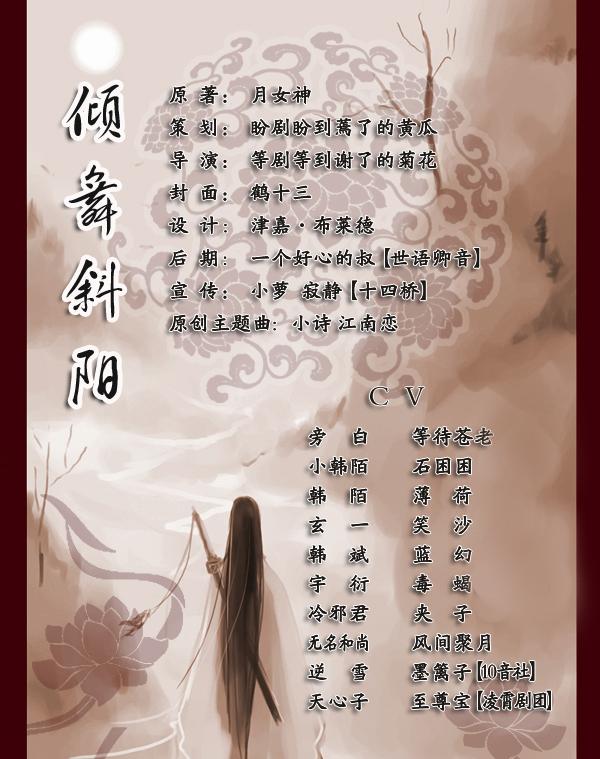 倾舞斜阳
原 著： 月女神
策 划： 盼剧盼到蔫了的黄瓜
导 演： 等剧等到谢了的菊花
封 面： 鹤十三
设 计： 津嘉·布莱德
后 期： 一个好心的叔【世语卿音】
宣 传： 小萝 寂静【十四桥】
原创主题曲：小诗 江南恋
CV
旁 白 等待苍老
小韩陌 石困困
韩 陌 薄 荷
玄 一 笑 沙
韩 斌 蓝 幻
宇 衍 毒 蝎
冷邪君 夹 子
无名和尚 风间聚月
逆 雪 墨篱子【10音社】
天心子 至尊宝【凌霄剧团】